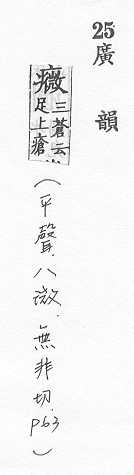 25廣韻
癓三蒼云足上瘡
(平聲.八微.無非切.p63)